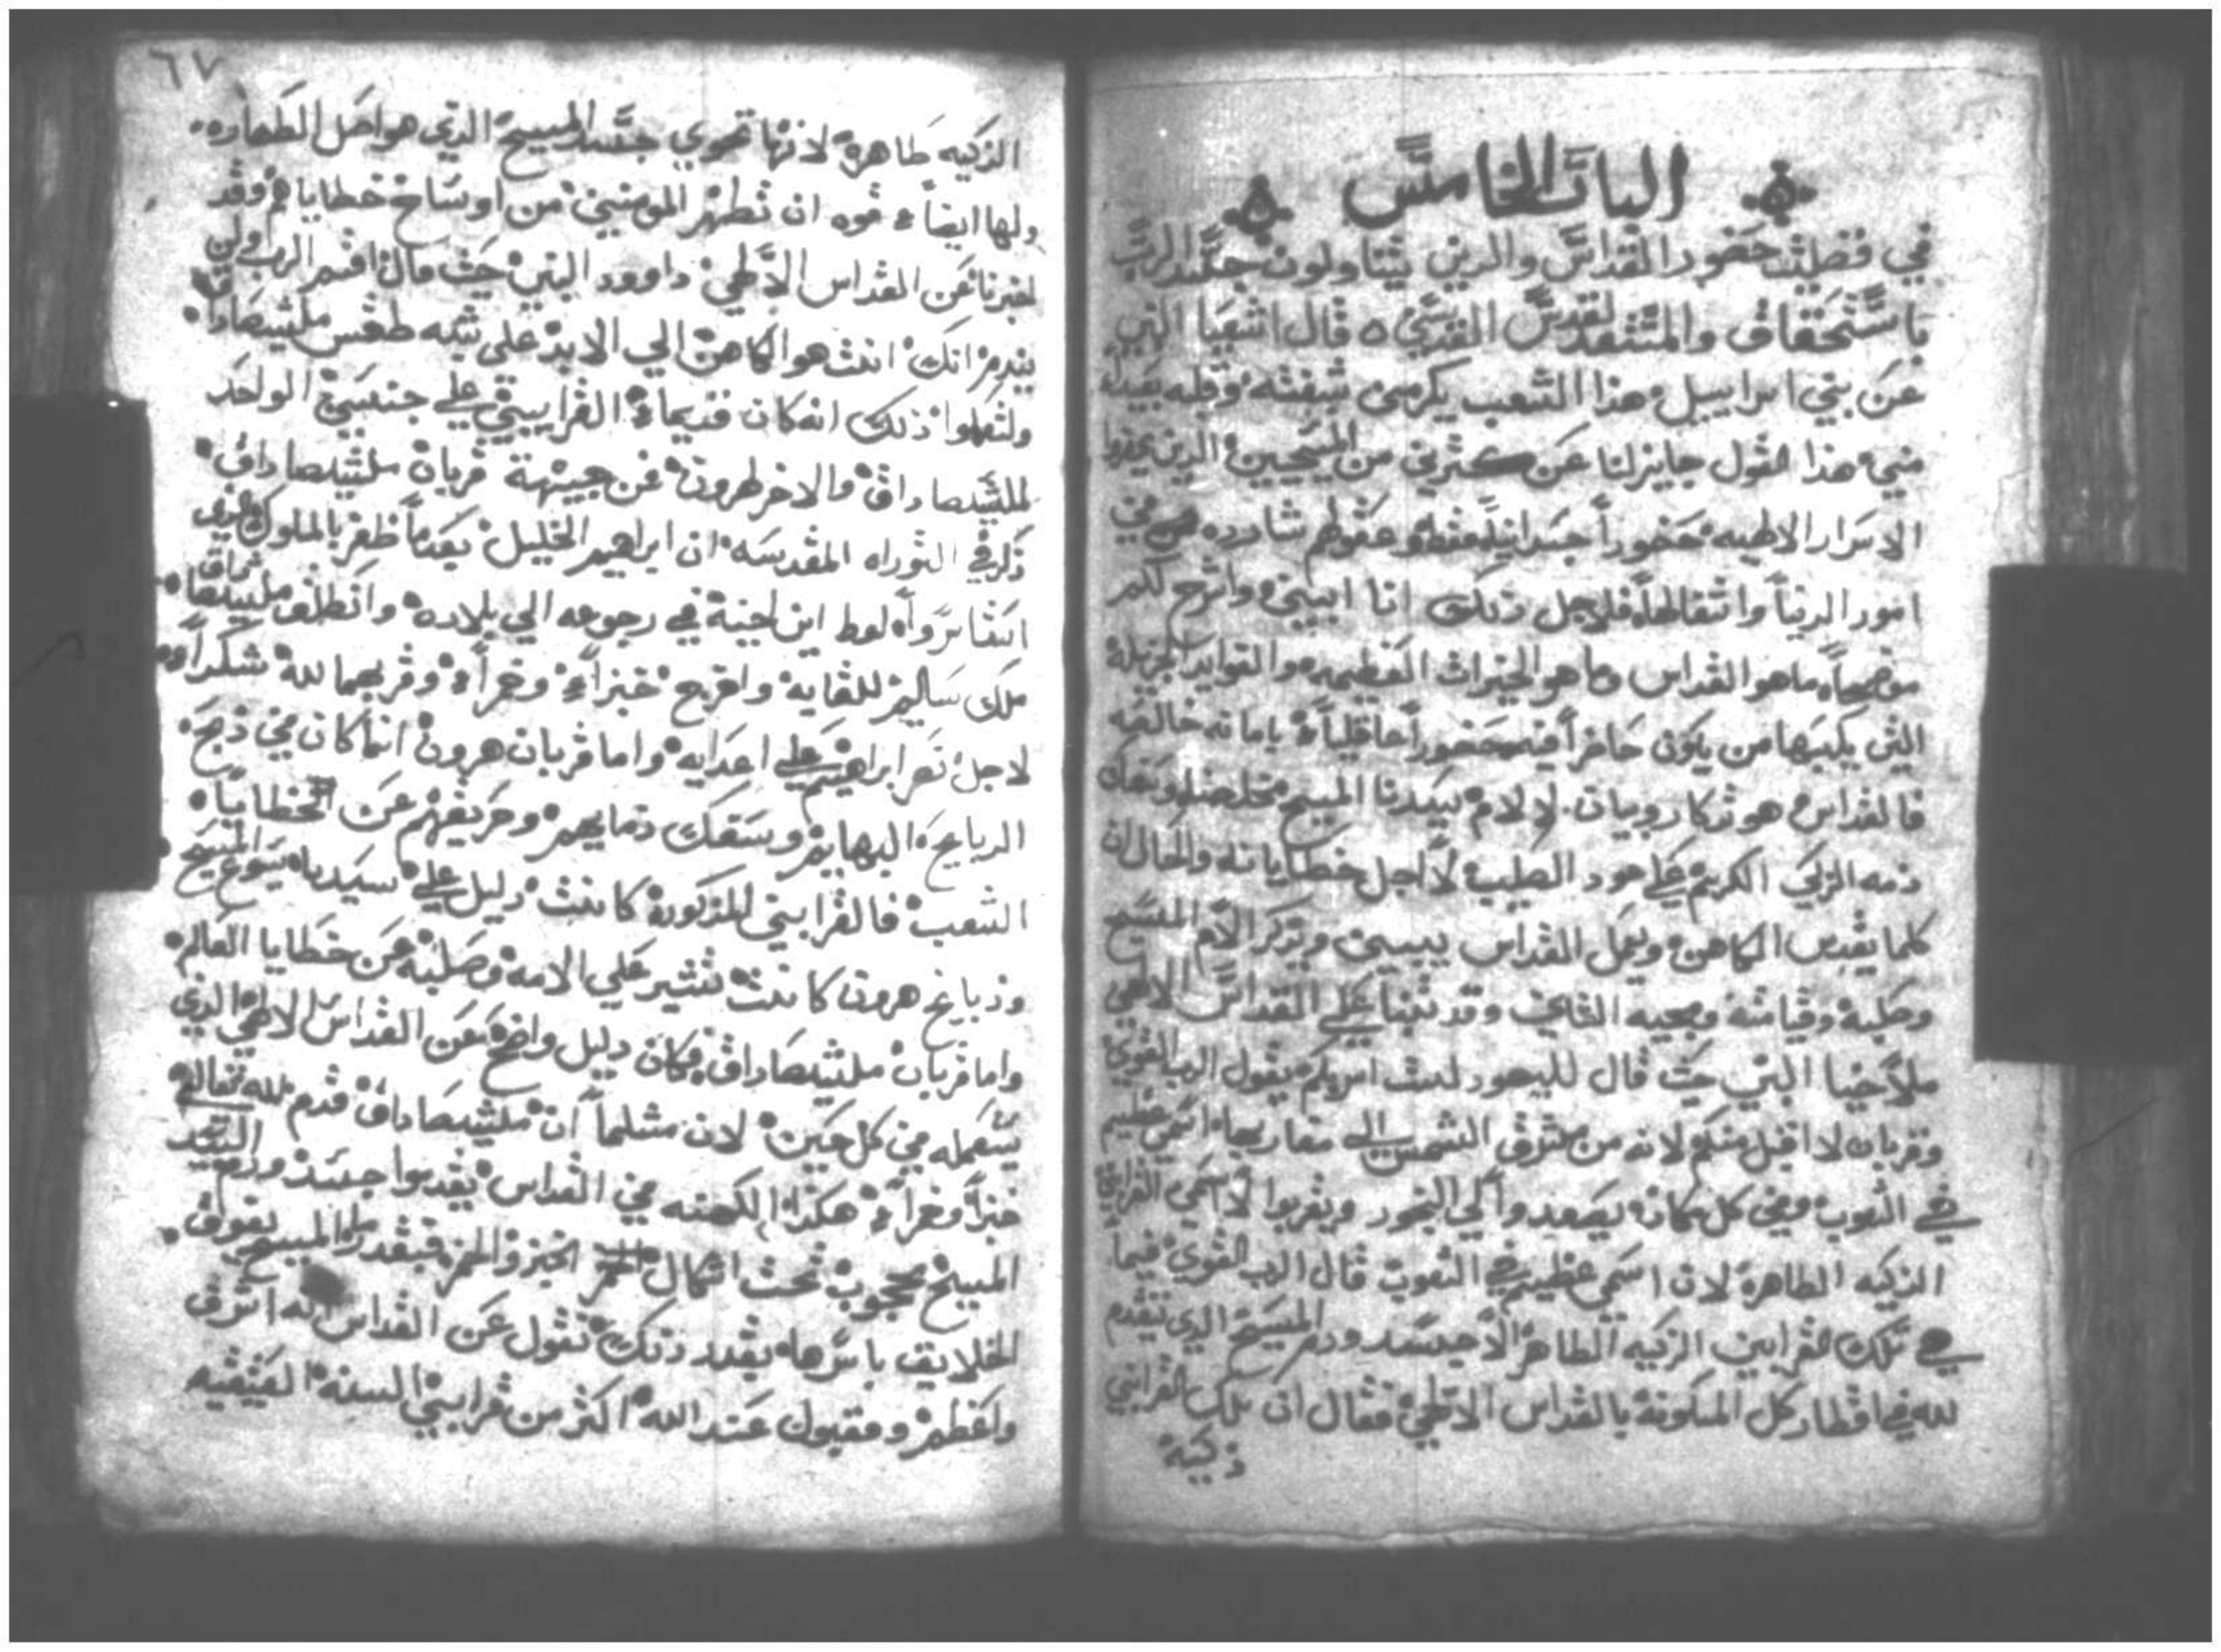 الباب الخامس
في فضيلة حضور القداس والدين يتناولون جسد الرب
باستحقاق والمتقدس لقدس القديسي ٥ قال اشعيا النبي
عن بني اسراييل هذا الشعب يكرمني بشفته وقلبه بعيد
مني هذا القول جايز لنا عن كثرين من المسيحيين الدين يحضروا
الاسرار الالهيه حضوراً جسدانياً فقط وعقولهم شارده في
امور الدنيا واثقالها فلاجل ذلك انا ابين واشرح لكم
موضحاً ما هو القداس وما هو الخيرات العظيمه والفوايد الجزيله
التي يكسبها من يكون حاضراً فيه حضوراً عاقلياً بامانه خالصه
فالقداس هو تدكار وبيان لالام سيدنا المسيح مخلصنا وسفك
دمه الزكي الكريم علي عود الصليب لاجل خطايانا والحال ان
كلما يقدس الكاهن ويعمل القداس يبين ويدكر الام المسيح
وصلبه وقيامته ومجيه التاني وقد تنبا علي القداس الالهي
ملاخيا النبي حيت قال لليهود لست اسر بكم يقول الرب القوي
وقربان لا اقبل منكم لانه من مشرق الشمس الي مغاربها اسمي عظيم
في الشعوب وفي كل مكان يصعدوا لي البخور ويقربوا لاسمي القرابين
الزكيه الطاهره لان اسمي عظيم في الشعوب قال الرب القوي فيما
هي تلك القرابين الزكيه الطاهره الا جسد ودم المسيح الدي يتقدم
لله في اقطار كل المسكونه بالقداس الالهي فقال ان تلك القرابين
زكيه
٦٧
الزكيه طاهره لانها تحوي جسد المسيح الدي هو اصل الطهاره
ولها ايضاً قوه ان تطهر المومنين من اوساخ خطاياهم وقد
اخبرنا عن القداس الالهي داوود النبي حيت قال اقسم الرب ولن
يندم انك انت هو الكاهن الي الابد علي شبه طقس ملشيصاداق
ولتعلموا ذلك انه كان قديماً القرابين علي جنسين الواحد
لملشيصاداق والاخر لهرون فن جيهة قربان ملشيصاداق
ذكر في التوراه المقدسه ان ابراهيم الخليل بعدما ظفر بالملوك الذي
اسروا لوط ابن اخيه في رجوعه الي بلاده وانطلق ملشيصاداق
ملك ساليم للقايه واخرج خبزاً وخمراً وقربهما لله شكراً
لاجل نصر ابراهيم علي اعدايه واما قربان هرون انما كان في ذبح
الدبايح البهايم وسفك دمايهم وحريقهم عن خطايا
الشعب فالقرابين المذكوره كانت دليل علي سيدنا يسوع المسيح
وذبايح هرون كانت تشير علي الامه وصلبه عن خطايا العالم
واما قربان ملشيصاداق فكان دليل واضح عن القداس الالهي الذي
يتعمله في كل حين لان مثلما ان ملشيصاداق قدم لله تعالي
خبزاً وخمراً هكذا الكهنه في القداس يقدموا جسد ودم السيد
المسيح محجوب تحت اشكال الخبز والخمر فبقدر ما المسيح يفوق
الخلايق باسرها بقدر ذلك نقول عن القداس انه اشرف
واعظم ومقبول عند الله اكثر من قرابين السنه العتيقه